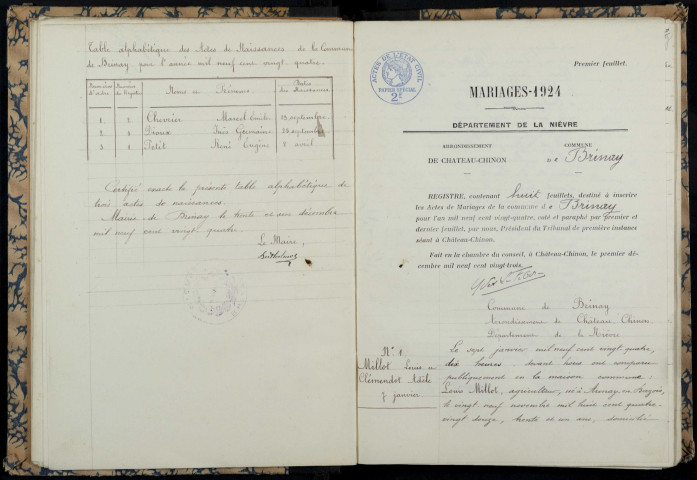 Table alphabétique des Actes de Naissances de la Commune
de Brinay pour l'année mil neuf cent vingt quatre.
Noms & Prénoms
Dates des Naissances
1 2 Chevrier Marcel Emile 13 septembre
2 Dioux Inès Germaine 23 septembre
3 1 Petit René Eugène 8 avril
Certifié exacte la présente table alphabétique de
trois actes de naissances.
Mairie de Brinay le trente et un décembre
mil neuf cent vingt quatre.
Le Maire,
Premier feuillet.
ACTES DE L'ETAT CIVIL
PAPIER SPECIAL
2F
MARIAGES-1924
DÉPARTEMENT DE LA NIÈVRE
ARRONDISSEMENT COMMUNE
DE CHATEAU-CHINON de Brinay
REGISTRE, contenant huit feuillets, destiné à inscrire
les Actes de Mariages de la commune de Brinay
pour l'an mil neuf cent vingt-quatre, coté et paraphé par premier et
dernier feuillet, par nous, Président du Tribunal de première instance
séant à Château-Chinon.
Fait en la chambre du conseil, à Château-Chinon, le premier dé-
cembre mil neuf cent vingt-trois
Commune de Brinay
Arrondissement de Château Chinon
Département de la Nièvre
N° 1
Millot Louis &
Clémendot Adèle
7 janvier
Le sept janvier mil neuf cent vingt quatre,
dix heures devant nous ont comparu
publiquement en la maison commune
Louis Millot, agriculteur, né à Aunay en Bazois,
le vingt neuf novembre mil huit cent quatre-
vingt douze, trente et un ans, domicilié